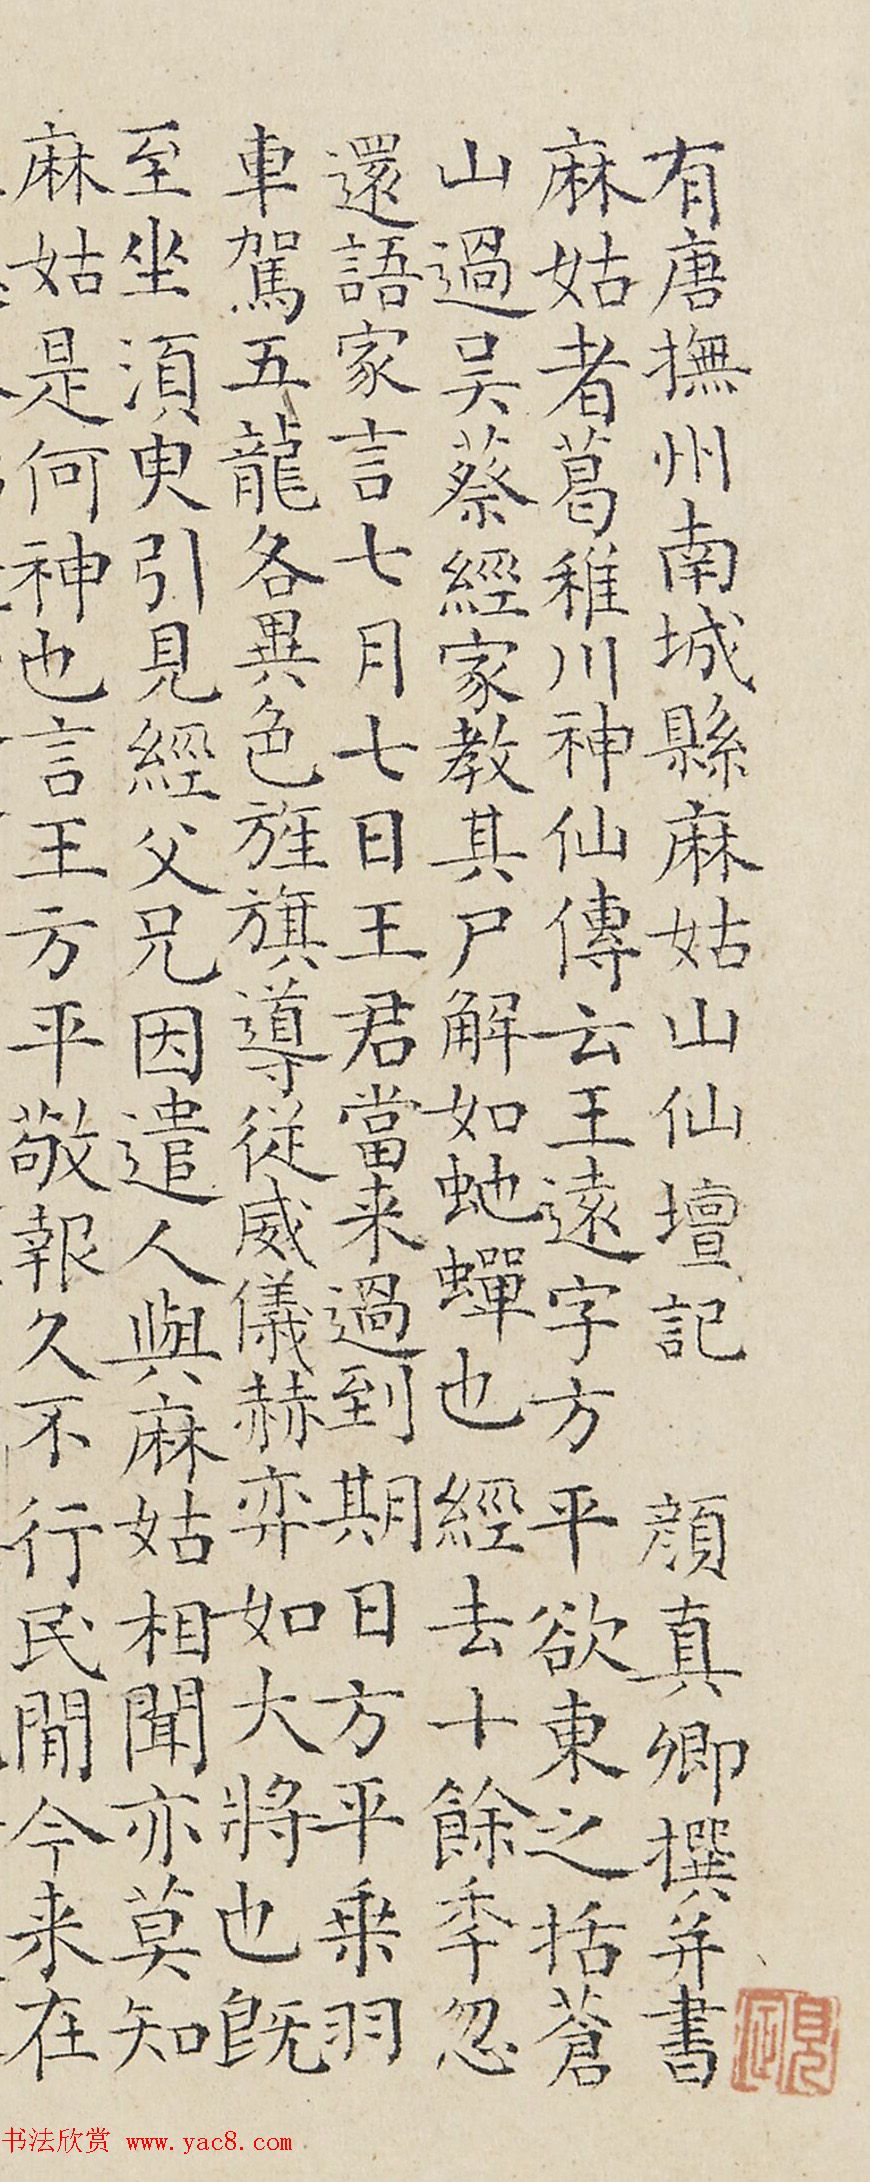 有唐撫州南城縣麻姑山仙壇記 顏真卿撰并書
麻姑者葛稚川神仙傳云王遠字方平欲東之括蒼
山過吴蔡經家教其尸解如虵蟬也經去十餘秊忽
還語家言七月七日王君當来過到期日方平乗羽
車駕五龍各異色旌旗導從威儀赫弈如大將也既
至坐湏臾引見經父兄因遣人與麻姑相聞亦莫知
麻姑是何神也言王方平敬報久不行民間今来在
书法欣赏 www.yac8.com